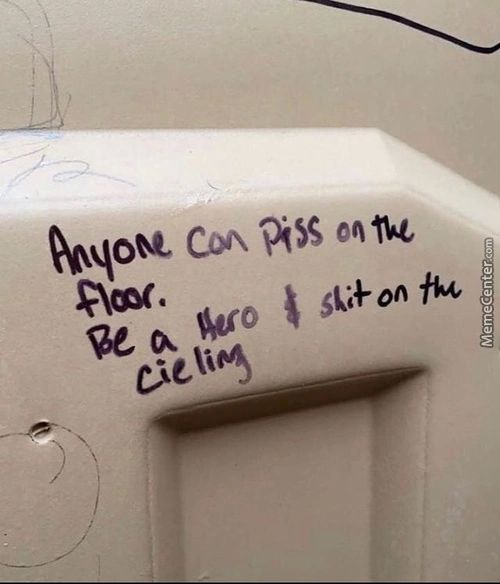 Anyone Can Piss on the
floor.
Be a Hero & shit on the
cieling
MemeCenter.com